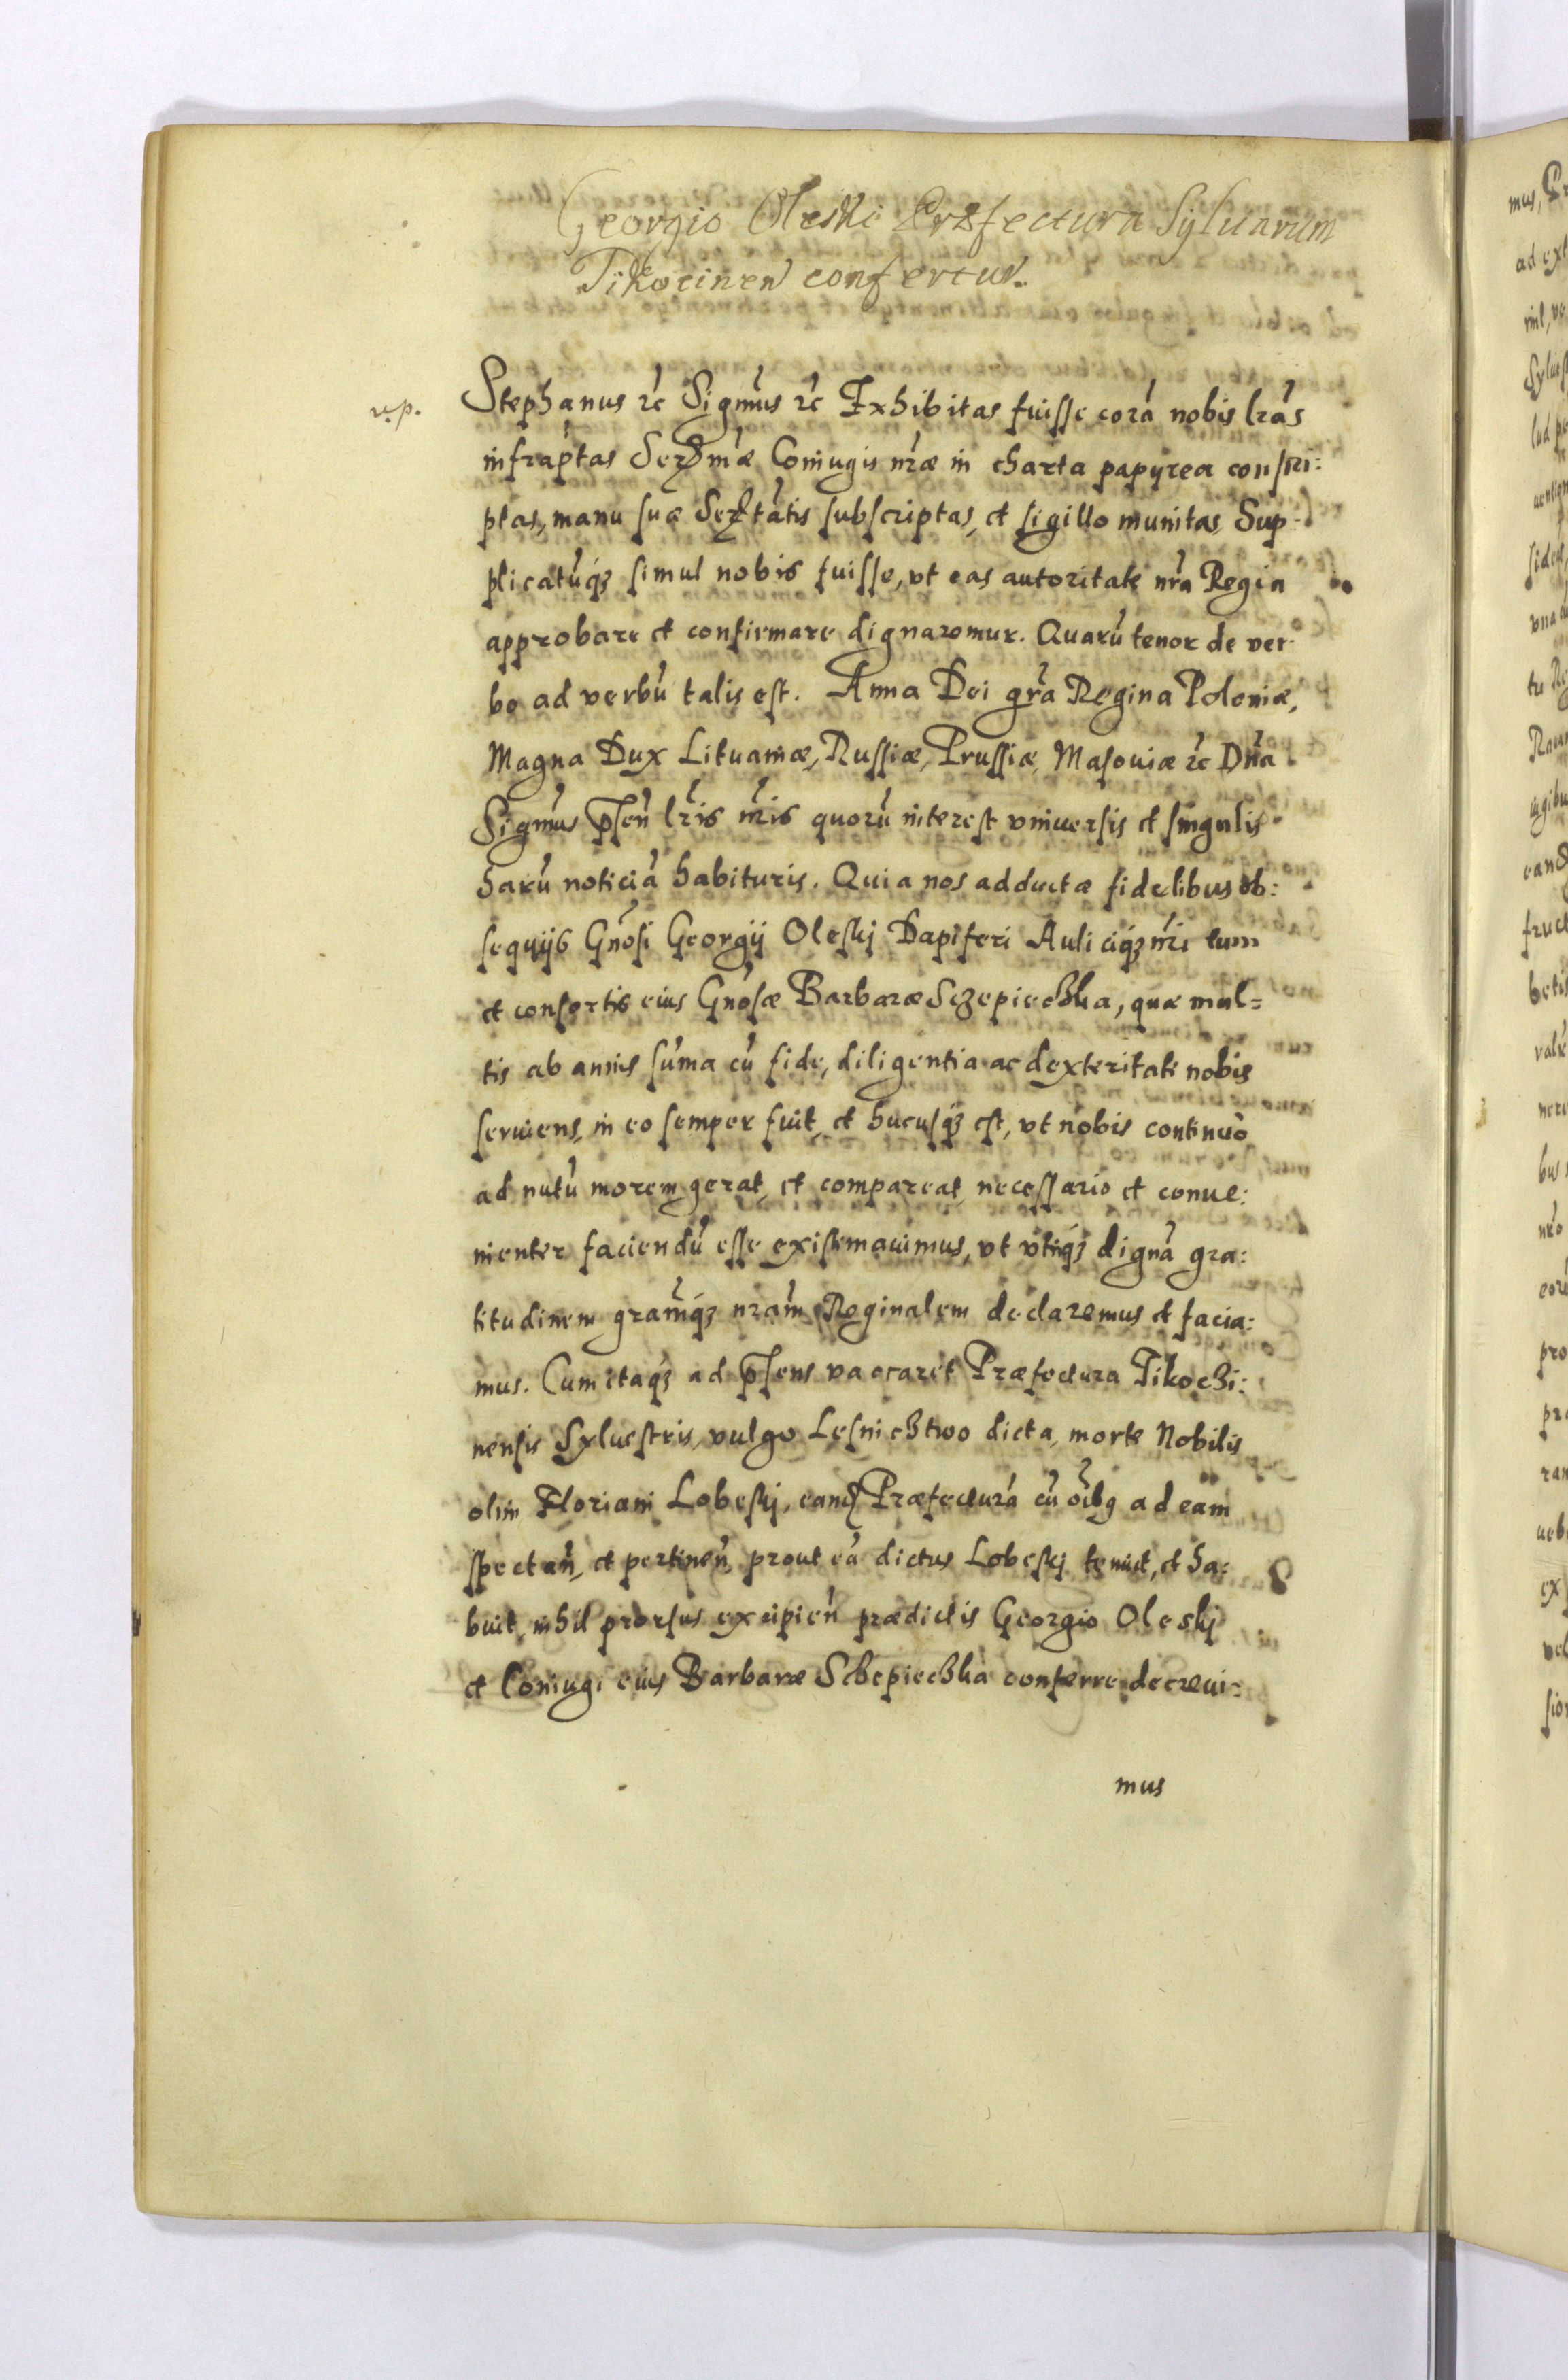 Georgio Oleski Præfectura Syluarum
Tikocinen confertur.
rep.
Stephanus etc Sigmus etc Exhibitas fuisse corá nobis lrás
infraptas Serꝫmæ Coniugis nræ in charta papyrea conscri:
ptas, manu suæ Serꝫtátis subscriptas, et sigillo munitas, Sup-
plicatúqꝫ simul nobis fuisse, vt eas autoritate nrá Regia
approbare et confirmare dignaremur. Quarú tenor de ver
bo ad verbú talis est. Anna Dei grá Regina Poloniæ,
Magna Dux Lituaniæ, Russiæ, Prussiæ, Masouiæ etc Dná
Sigmus pseń lris nris quorú interest vniuersis et singulis
harú noticiá habituris. Quia nos adductæ fidelibus ob:
sequijs Gnosi Georgij Oleskj Dapiferi Auliciqꝫ nri tum
et consortis eius Gnosæ Barbaræ Sczepieczka, quæ mul=
tis ab annis súma cú fide, diligentia ac dexteritate nobis
seruiens, in eo semper fuit, et hucusqꝫ est, vt nobis continuò
ad nutú morem gerat, et compareat, necessario et conue:
nienter faciendú esse existimauimus, vt vtiqꝫ digná gra:
titudinem gramqꝫ nram Reginalem declaremus et facia:
mus. Cum itaqꝫ ad psens vacaret Præfectura Tikochi:
nensis Syluestris, vulgo Lesnicztwo dicta, morte Nobilis
olim Floriani Lobeskj, eandꝫ Præfecturá cú oibꝫ ad eam
spectań, et pertineń prout eá dictus Lobeskj tenuit, et ha:
buit, nihil prorsus excipień prædictis Georgio Oleskj
et Coniugi eius Barbaræ Sczepieczka conferre decreui:
mus